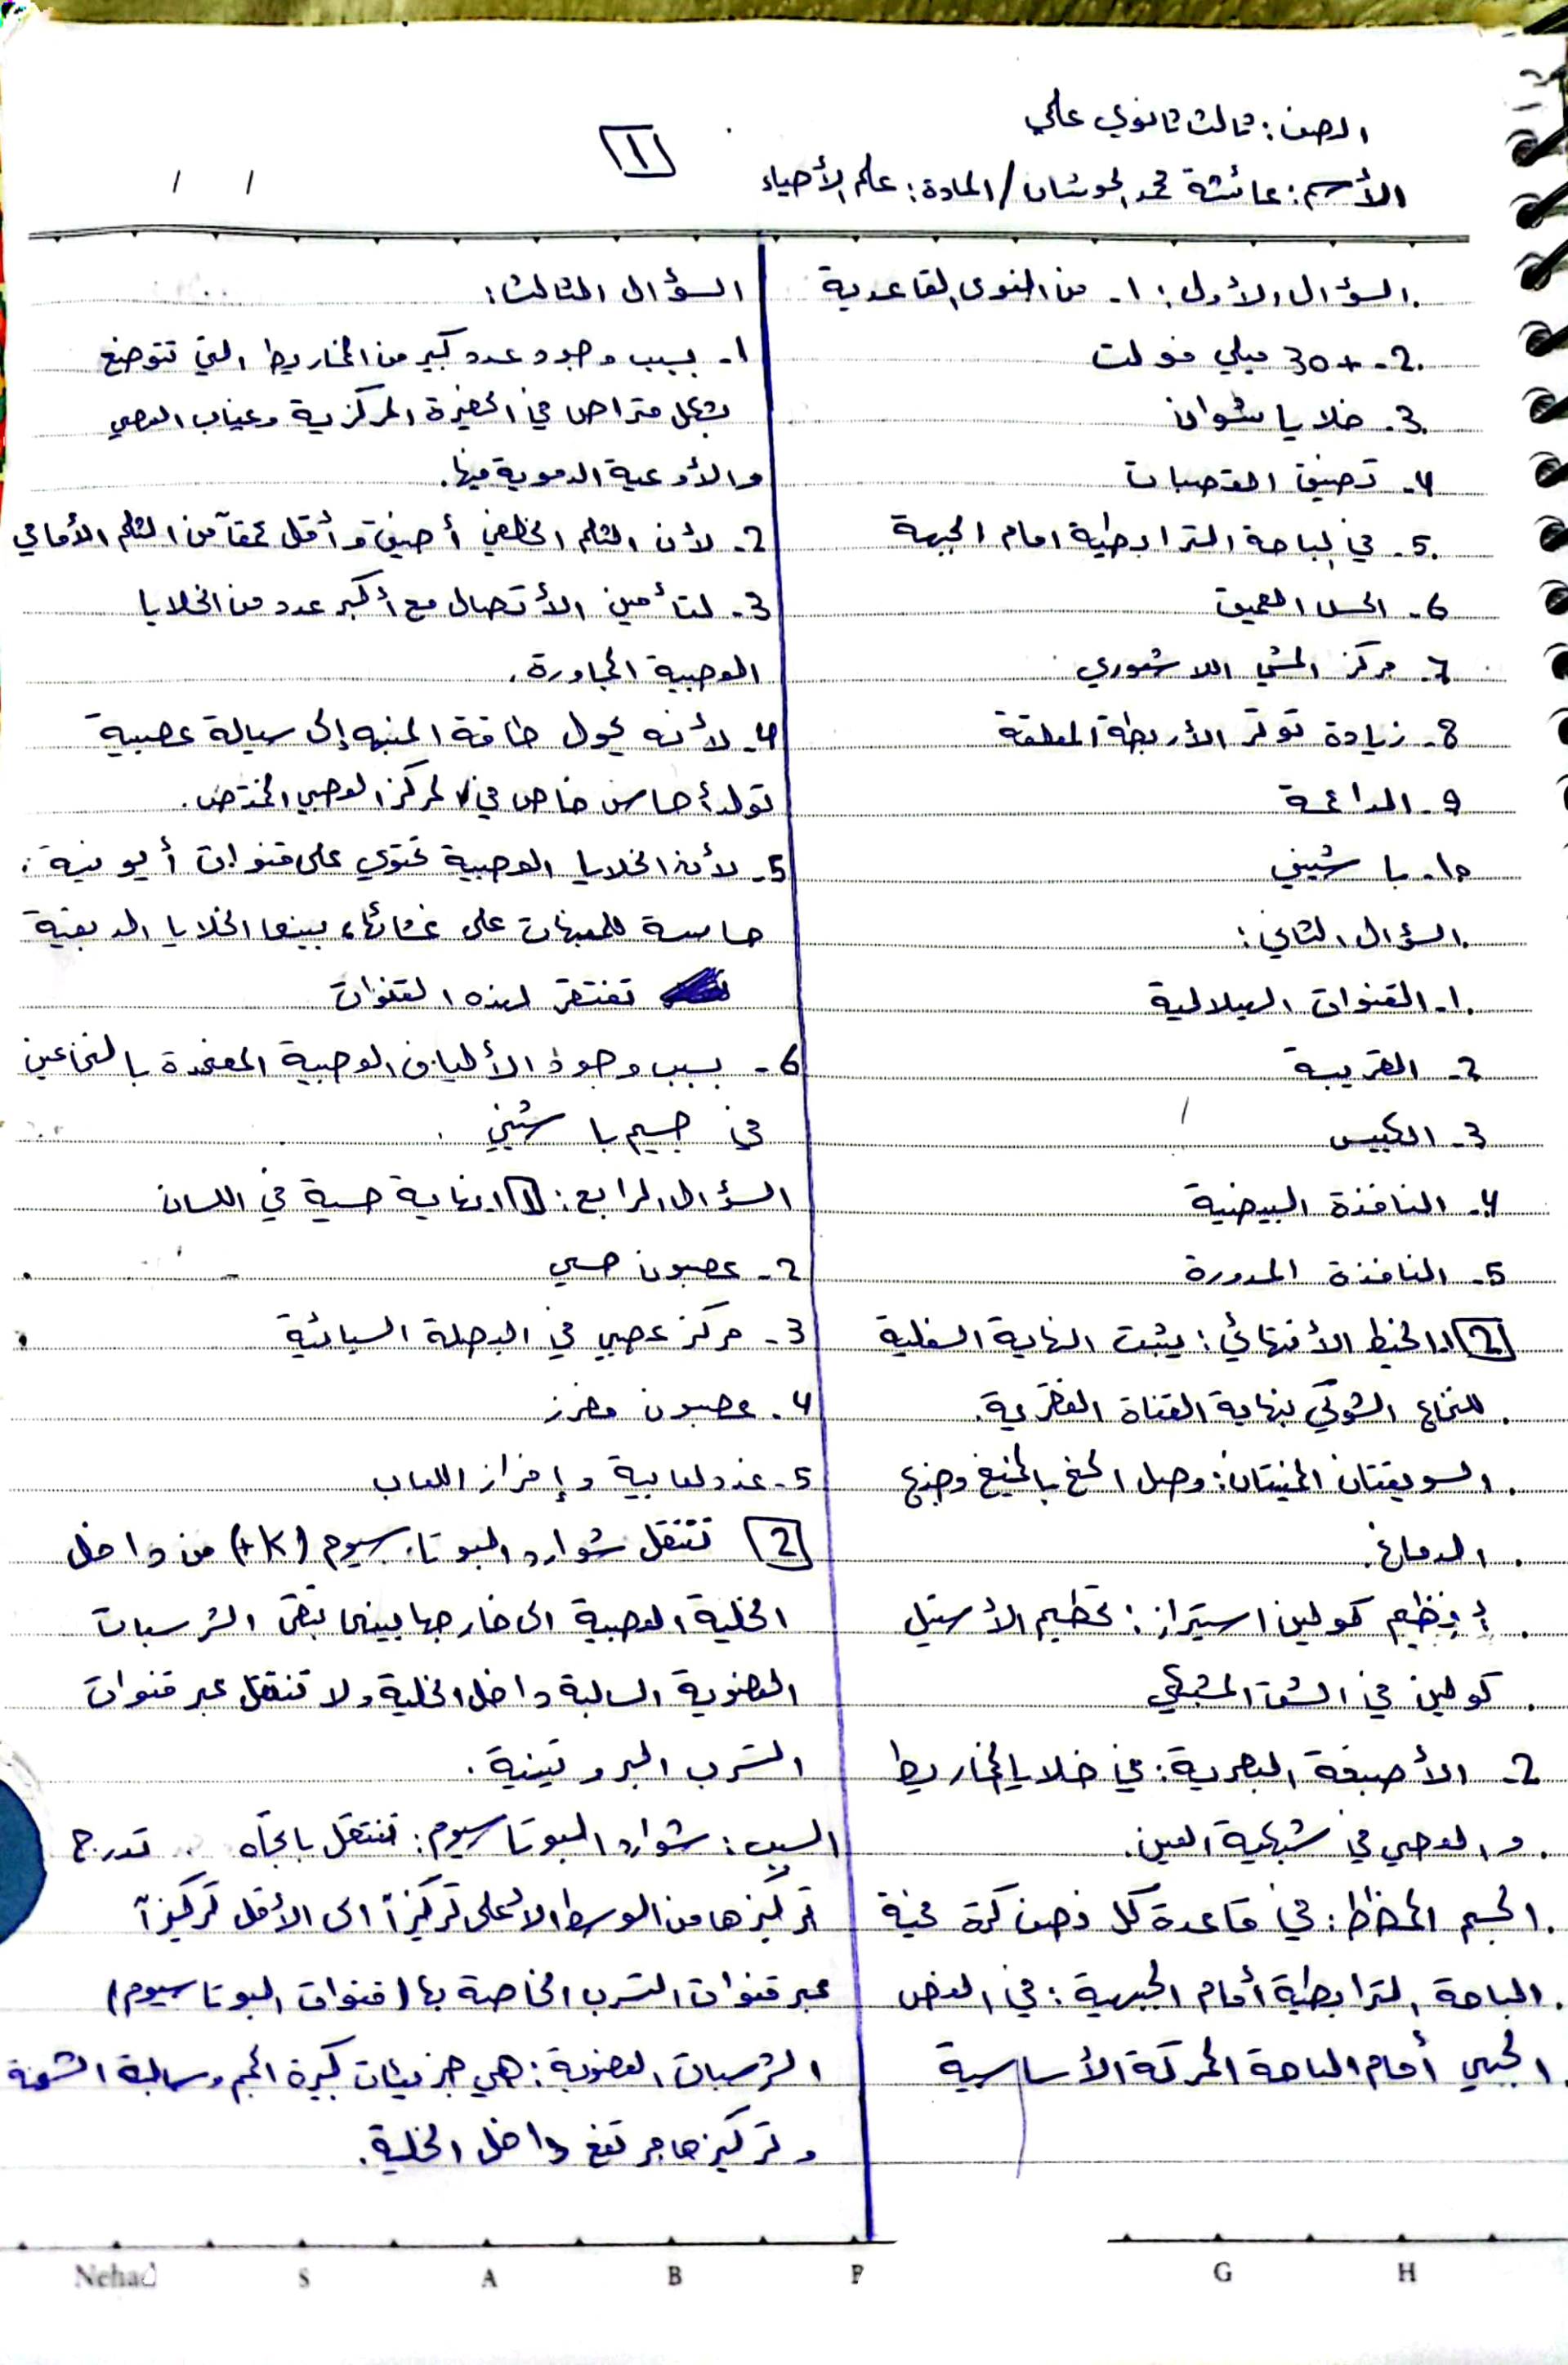 الصف: ثالث ثانوي علمي
1
الأسم: عائشة محمد الحوشان / المادة: علم الأحياء
/ /
السؤال الأول: 1- من النوى القاعدية
2- +30 ميلي فولت
3- خلايا شوان
4- تضيق القصبات
5- في الباحة الترابطية امام الجبهة
6- الحس العميق
7- مركز المشي اللاشعوري
8- زيادة توتر الأربطة المعلقة
9- الداعمة
10- باشيني
السؤال الثاني:
1- القنوات الهلالية
2- القريبة
3- الكييس
4- النافذة البيضية
5- النافذة المدورة
2 1. الخيط الأنتهائي: يثبت النهاية السفلية
للنخاع الشوكي بنهاية القناة الفقرية.
السويقتان المخيتان: وصل المخ بالمخيخ وجذع
الدماغ.
أنظيم كولين استيراز: تحطيم الأستيل
كولين في الشق المشبكي
2- الأصبغة البصرية: في خلايا المخاريط
و العصي في شبكية العين.
الجسم المخطط: في قاعدة كل نصف كرة مخية
الباحة الترابطية أمام الجبهية: في الفص
الجبهي أمام الباحة المحركة الأساسية
السؤال الثالث:
1- بسبب وجود عدد كبير من المخاريط التي تتوضع
بشكل متراص في الحفيرة المركزية وغياب العصي
والأوعية الدموية فيها.
2- لأن الثلم الخلفي أضيق وأقل عمقاً من الثلم الأمامي
3- لتأمين الأتصال مع أكبر عدد من الخلايا
العصبية المجاورة.
4- لأنه يحول طاقة المنبه إلى سيالة عصبية
تولد أحساس خاص في المركز العصبي المختص.
5- لأن الخلايا العصبية تحتوي على قنوات أيونية
حاسة للمنبهات على غشائها، بينما الخلايا الدبقية
تفتقر لهذه القنوات
6- بسبب وجود الألياف العصبية المغمدة بالنخاعين
في جسيم باشيني.
السؤال الرابع: 1 1. نهاية حسية في اللسان
2- عصبون حسي
3- مركز عصبي في البصلة السيسائية
4- عصبون مفرز
5- غدد لعابية وإفراز اللعاب
2 تنتقل شوارد البوتاسيوم (K+) من داخل
الخلية العصبية الى خارجها بينما تبقى الشرسبات
العضوية السالبة داخل الخلية ولا تنتقل عبر قنوات
التسرب البروتينية.
السبب: شوارد البوتاسيوم: تنتقل باتجاه تدرج
تركيزها من الوسط الأعلى تركيزاً الى الأقل تركيزاً
عبر قنوات التسرب الخاصة بها (قنوات البوتاسيوم)
الشرسبات العضوية: هي جزيئات كبيرة الحجم وسالبة الشحنة
وتركيزها مرتفع داخل الخلية.
Nehad S A B F G H